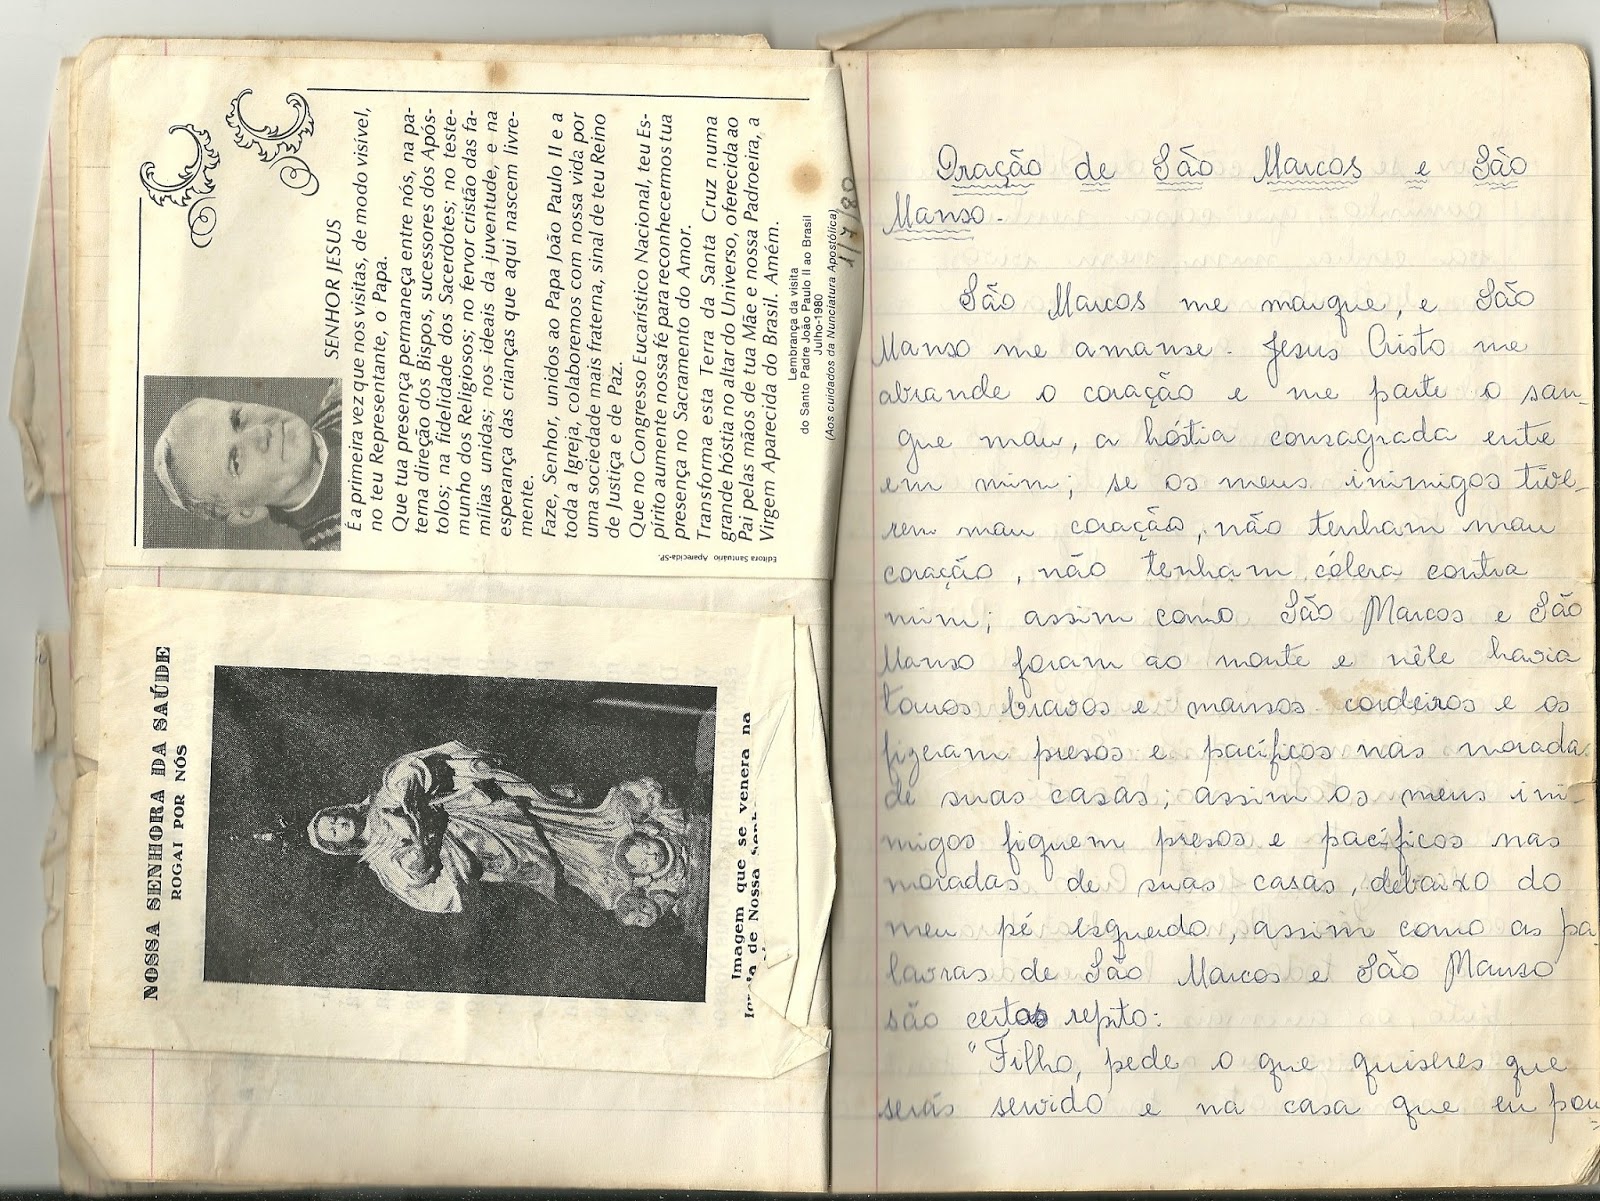 SENHOR JESUS
É a primeira vez que nos visitas, de modo visível,
no teu Representante, o Papa.
Que tua presença permaneça entre nós, na pa-
terna direção dos Bispos, sucessores dos Após-
tolos; na fidelidade dos Sacerdotes; no teste-
munho dos Religiosos; no fervor cristão das fa-
mílias unidas; nos ideais da juventude, e na
esperança das crianças que aqui nascem livre-
mente.
Faze, Senhor, unidos ao Papa João Paulo II e a
toda a Igreja, colaboremos com nossa vida por
uma sociedade mais fraterna, sinal de teu Reino
de Justiça e de Paz.
Que no Congresso Eucarístico Nacional, teu Es-
pírito aumente nossa fé para reconhecermos tua
presença no Sacramento do Amor.
Transforma esta Terra da Santa Cruz numa
grande hóstia no altar do Universo, oferecida ao
Pai pelas mãos de tua Mãe e nossa Padroeira, a
Virgem Aparecida do Brasil. Amém.
Lembrança da visita
do Santo Padre João Paulo II ao Brasil
Julho-1980
(Aos cuidados da Nunciatura Apostólica)
Editora Santuário Aparecida-SP.
NOSSA SENHORA DA SAÚDE
ROGAI POR NÓS
Imagem que se venera na
de Nossa
Oração de São Marcos e São
Manso.
São Marcos me marque, e São
Manso me amanse. Jesus Cristo me
abrande o coração e me parte o san-
gue mau, a hóstia consagrada entre
em mim; se os meus inimigos tive-
rem mau coração, não tenham mau
coração, não tenham cólera contra
mim; assim como São Marcos e São
Manso foram ao monte e nêle havia
touros bravos e mansos cordeiros e os
fizeram presos e pacíficos nas morada
de suas casas; assim os meus ini-
migos fiquem presos e pacíficos nas
moradas de suas casas, debaixo do
meu pé esquerdo, assim como as pa
lavras de São Marcos e São Manso
são certas repito:
"Filho, pede o que quiseres que
serás servido e na casa que eu pou-